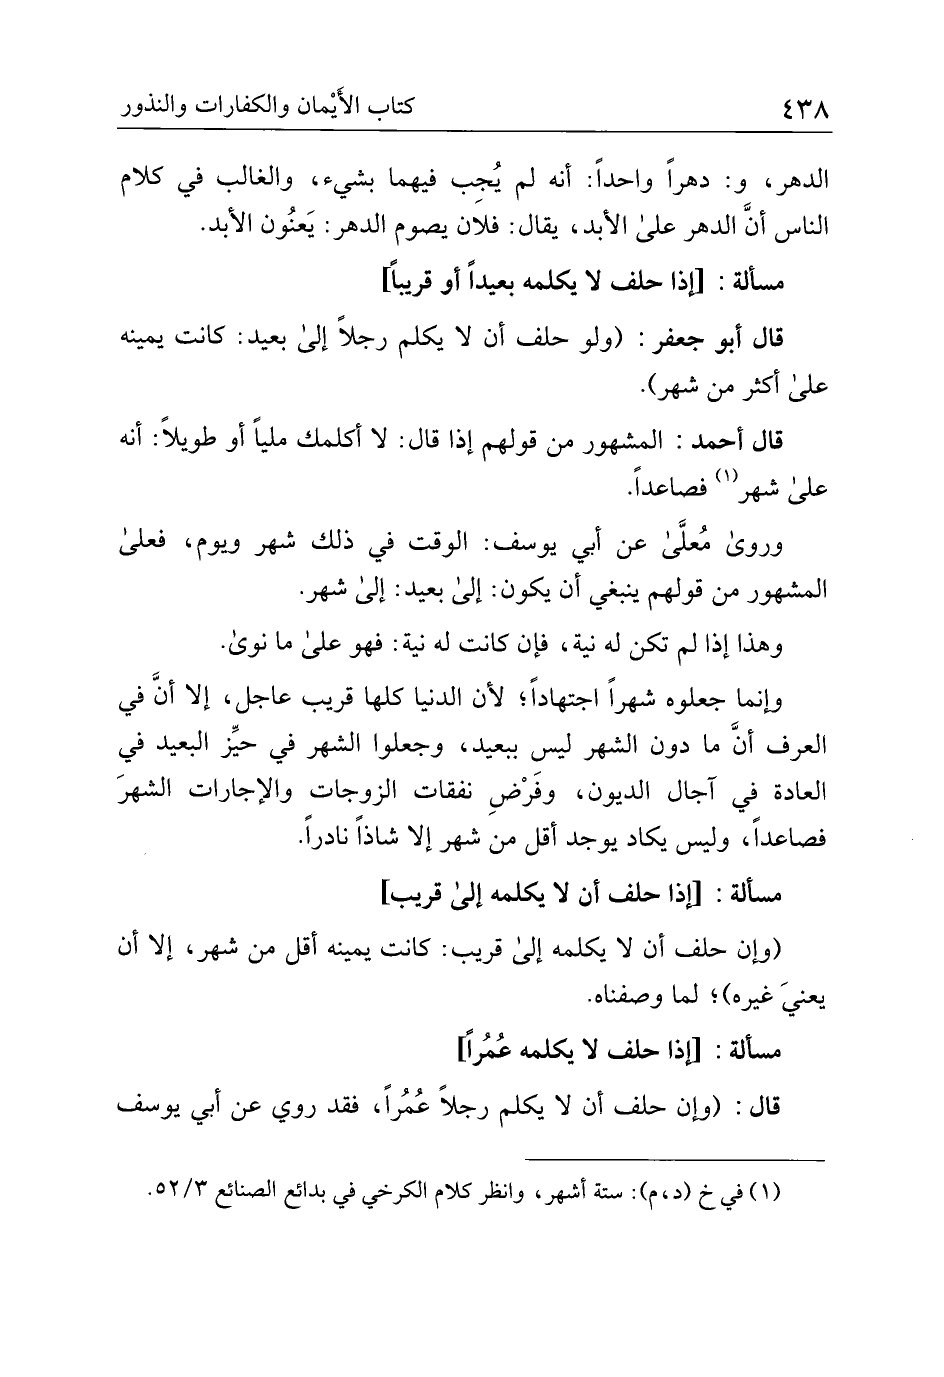 ٤٣٨ كتاب الأَيْمان والكفارات والنذور
الدهر، و: دهراً واحداً: أنه لم يُجِب فيهما بشيء، والغالب في كلام
الناس أنَّ الدهر علىٰ الأبد، يقال: فلان يصوم الدهر: يَعنُون الأبد.
مسألة : [إذا حلف لا يكلمه بعيداً أو قريباً]
قال أبو جعفر : (ولو حلف أن لا يكلم رجلاً إلىٰ بعيد: كانت يمينه
علىٰ أكثر من شهر).
قال أحمد : المشهور من قولهم إذا قال: لا أكلمك ملياً أو طويلاً: أنه
علىٰ شهر(١) فصاعداً.
وروىٰ مُعلَّىٰ عن أبي يوسف: الوقت في ذلك شهر ويوم، فعلىٰ
المشهور من قولهم ينبغي أن يكون: إلىٰ بعيد: إلىٰ شهر.
وهذا إذا لم تكن له نية، فإن كانت له نية: فهو علىٰ ما نوىٰ.
وإنما جعلوه شهراً اجتهاداً؛ لأن الدنيا كلها قريب عاجل، إلا أنَّ في
العرف أنَّ ما دون الشهر ليس ببعيد، وجعلوا الشهر في حيِّز البعيد في
العادة في آجال الديون، وفَرْضِ نفقات الزوجات والإجارات الشهرَ
فصاعداً، وليس يكاد يوجد أقل من شهر إلا شاذاً نادراً.
مسألة : [إذا حلف أن لا يكلمه إلىٰ قريب]
(وإن حلف أن لا يكلمه إلىٰ قريب: كانت يمينه أقل من شهر، إلا أن
يعنيَ غيره)؛ لما وصفناه.
مسألة : [إذا حلف لا يكلمه عُمُراً]
قال : (وإن حلف أن لا يكلم رجلاً عُمُراً، فقد روي عن أبي يوسف
(١) في خ (د،م): ستة أشهر، وانظر كلام الكرخي في بدائع الصنائع ٥٢/٣.